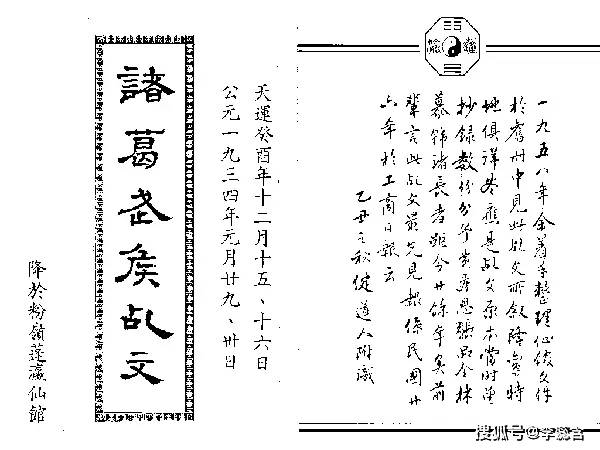 一九五八年余着手整理仙館文件
於舊刊中見此乩文所敘降鸞時
地俱詳應是乩文原本當時曾
抄錄數份分予黃恩張品全林
慕諸長者距今廿餘年矣前
輩言此乩文最先見報係民國廿
六年於工商日報云
乙丑之秋道人附識
天運癸酉年十二月十五、十六日
公元一九三四年元月廿九、卅日
諸葛武侯乩文
降於粉嶺蓬瀛仙館
搜狐号@李蕊含